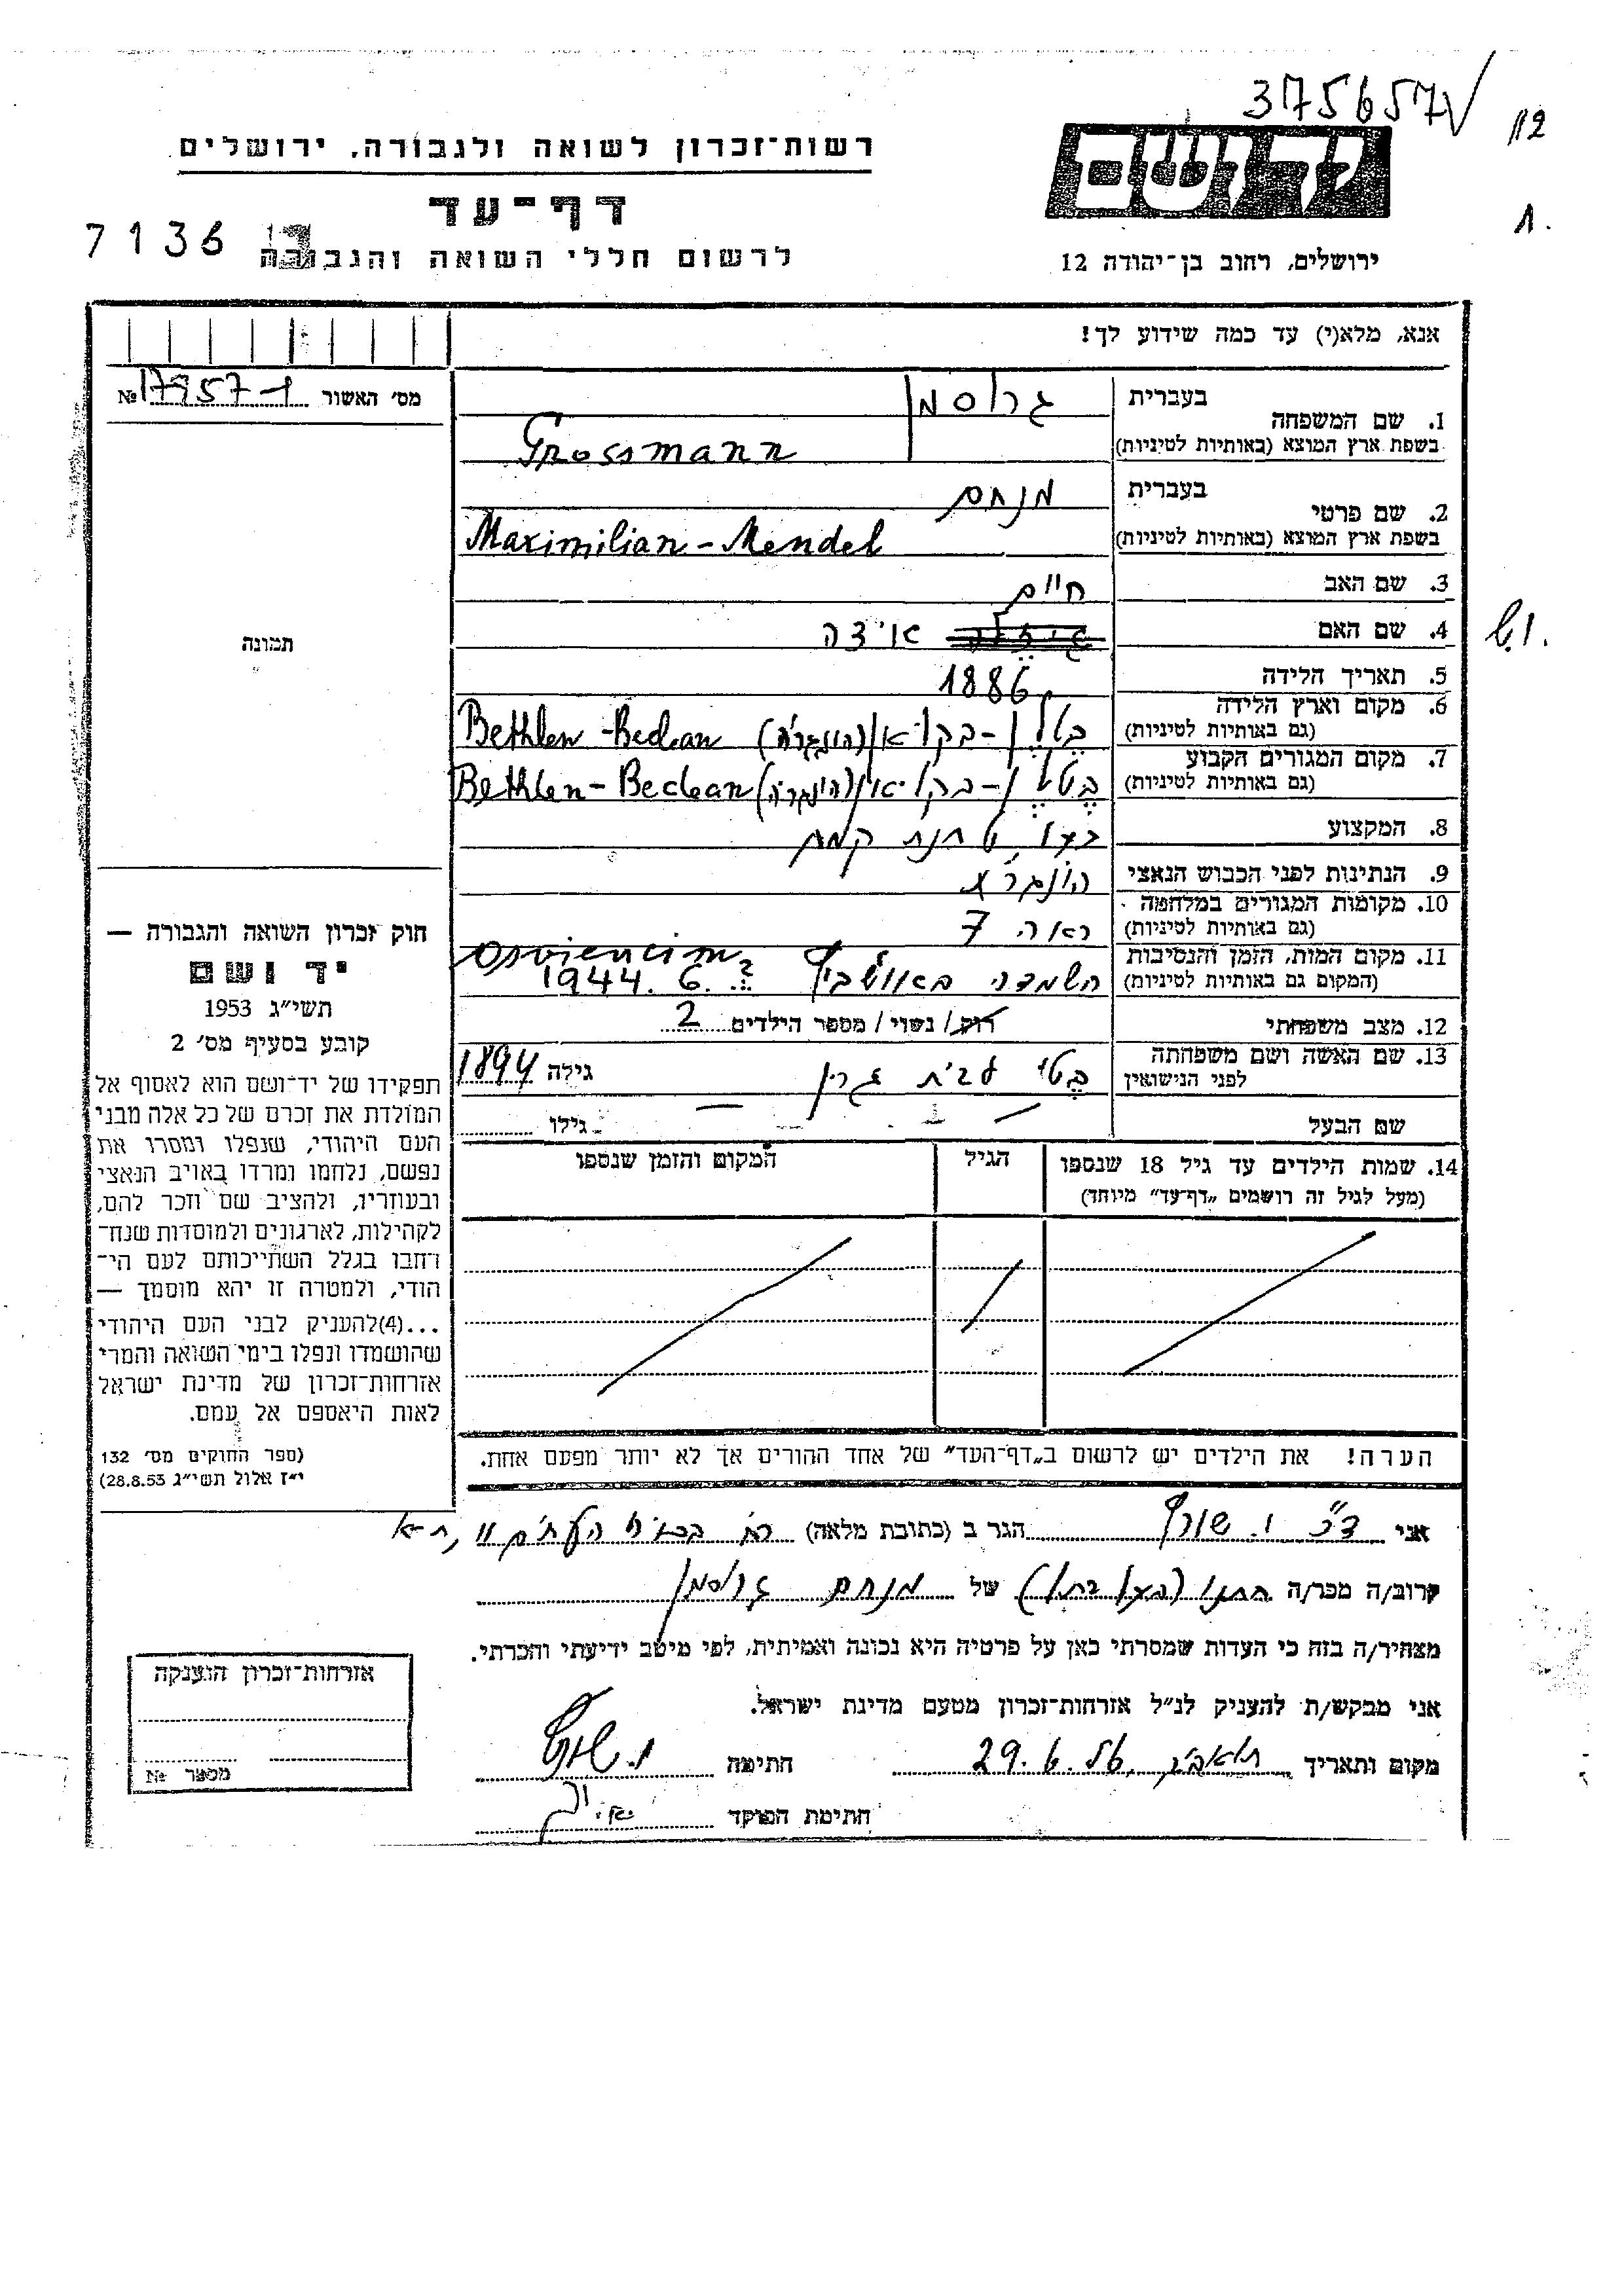 375657
12
רשות־זכרון לשואה ולגבורה, ירושלים
דף־עד
7136
לרשום חללי השואה והגבורה
ירושלים, רחוב בן־יהודה 12
1.
אנא, מלא(י) עד כמה שידוע לך!
מס׳ האשור № 17957-1
בעברית גרוסמן
1. שם המשפחה
בשפת ארץ המוצא (באותיות לטיניות) Grossmann
בעברית מנחם
2. שם פרטי
בשפת ארץ המוצא (באותיות לטיניות) Maximilian - Mendel
3. שם האב חיים
4. שם האם אידה
5. תאריך הלידה 1886
6. מקום וארץ הלידה
(גם באותיות לטיניות) בטלן - בקליאן (הונגריה) Bethlen - Beclean
7. מקום המגורים הקבוע
(גם באותיות לטיניות) בטלן - בקליאן (הונגריה) Bethlen - Beclean
8. המקצוע בעל טחנת קמח
9. הנתינות לפני הכבוש הנאצי הונגרית
10. מקומות המגורים במלחמה
(גם באותיות לטיניות) ראה 7
11. מקום המות, הזמן והנסיבות
(המקום גם באותיות לטיניות) השמדה באושביץ Osviencim 1944. 6. ?
12. מצב משפחתי רווק / נשוי / מספר הילדים 2
13. שם האשה ושם משפחתה
לפני הנישואין בטי לבית גרין גילה 1894
שם הבעל — — — גילו
14. שמות הילדים עד גיל 18 שנספו
(מעל לגיל זה רושמים „דף־עד” מיוחד)
הגיל
המקום והזמן שנספו
הערה! את הילדים יש לרשום ב„דף־העד” של אחד ההורים אך לא יותר מפעם אחת.
תמונה
חוק זכרון השואה והגבורה —
יד ושם
תשי״ג 1953
קובע בסעיף מס׳ 2
תפקידו של יד־ושם הוא לאסוף אל
המולדת את זכרם של כל אלה מבני
העם היהודי, שנפלו ומסרו את
נפשם, נלחמו ומרדו באויב הנאצי
ובעוזריו, ולהציב שם וזכר להם,
לקהילות, לארגונים ולמוסדות שנח־
רחבו בגלל השתייכותם לעם הי־
הודי, ולמטרה זו יהא מוסמך —
...(4)להעניק לבני העם היהודי
שהושמדו ונפלו בימי השואה והמרי
אזרחות־זכרון של מדינת ישראל
לאות היאספם אל עמם.
(ספר החוקים מס׳ 132
י״ז אלול תשי״ג 28.8.53)
אני ד״ר י. שורץ הגר ב (כתובת מלאה) רח׳ 11, ת״א
קרוב/ה מכר/ה חתנו (בעל בתו) של מנחם גרוסמן
מצהיר/ה בזה כי העדות שמסרתי כאן על פרטיה היא נכונה ואמיתית, לפי מיטב ידיעתי והכרתי.
אני מבקש/ת להעניק לנ״ל אזרחות־זכרון מטעם מדינת ישראל.
מקום ותאריך תל אביב, 29.6.56 חתימה י. שורץ
חתימת הפוקד
אזרחות־זכרון הוענקה
מספר №